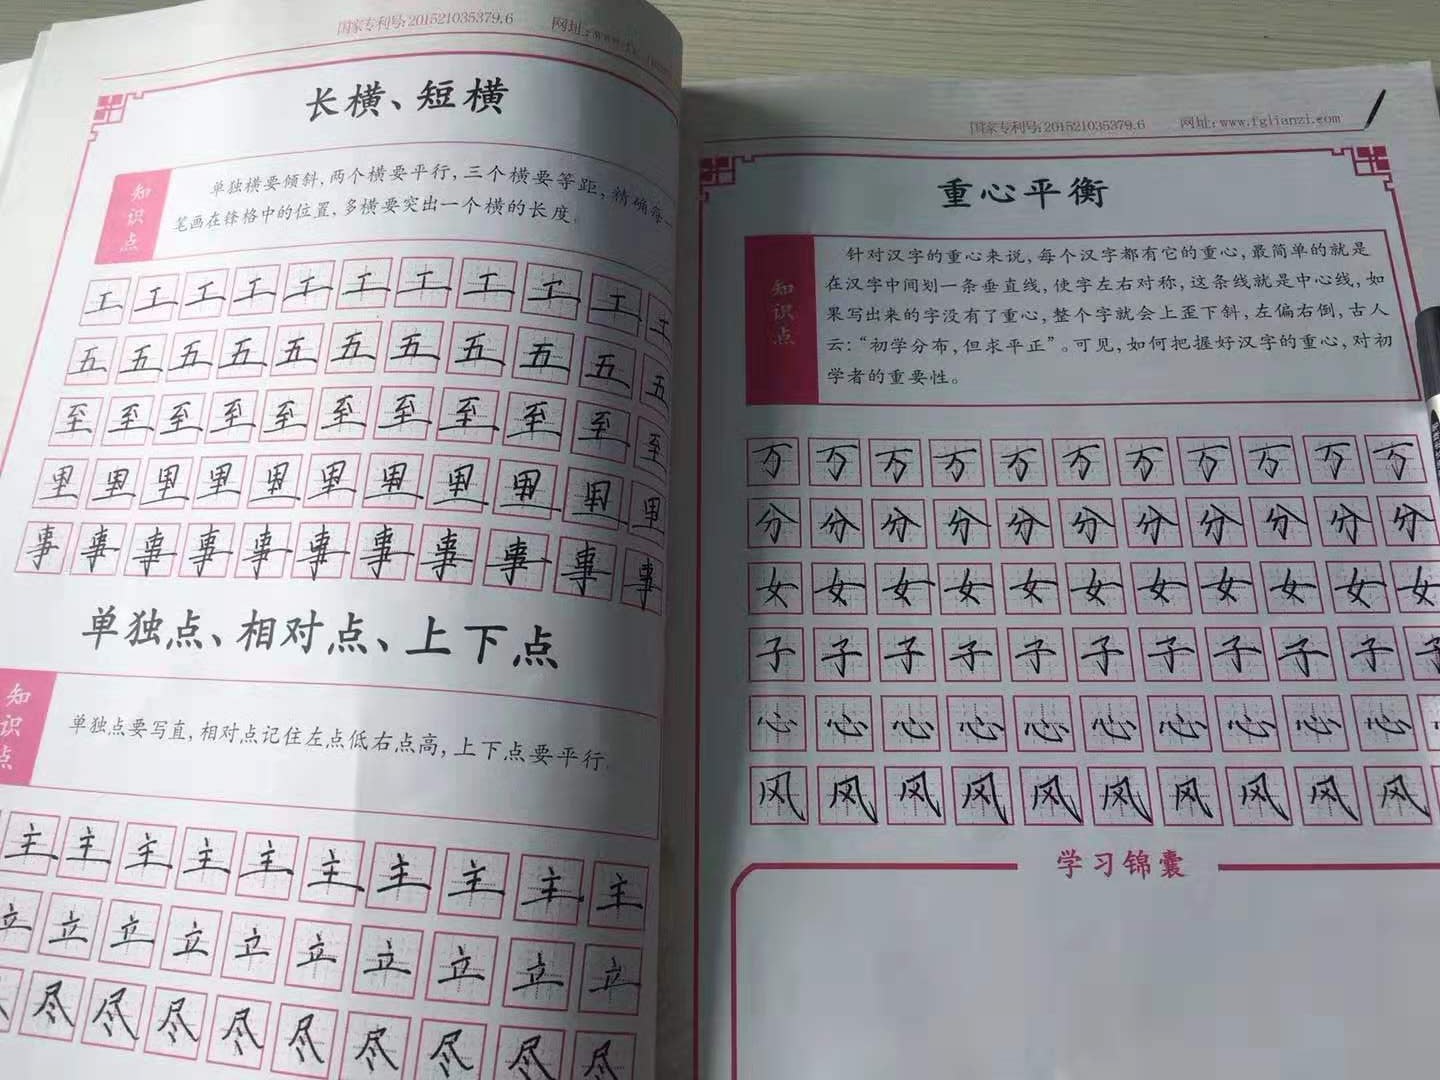 国家专利号:201521035379.6 网址:www.
长横、短横
知识点
单独横要倾斜,两个横要平行,三个横要等距,精确每一
笔画在锋格中的位置,多横要突出一个横的长度。
工工工工工工工工工工工
五五五五五五五五五五五
至至至至至至至至至至至
里里里里里里里里里里里
事事事事事事事事事事事
单独点、相对点、上下点
知识点
单独点要写直,相对点记住左点低右点高,上下点要平行。
主主主主主主主主主主
立立立立立立立立立立
尽尽尽尽尽尽尽尽尽
国家专利号:201521035379.6 网址:www.fglianzi.com
重心平衡
知识点
针对汉字的重心来说,每个汉字都有它的重心,最简单的就是
在汉字中间划一条垂直线,使字左右对称,这条线就是中心线,,如
果写出来的字没有了重心,整个字就会上歪下斜,左偏右倒,古人
云:“初学分布,但求平正”。可见,如何把握好汉字的重心,对初
学者的重要性。
万万万万万万万万万万万
分分分分分分分分分分分
女女女女女女女女女女女
子子子子子子子子子子子
心心心心心心心心心心
风风风风风风风风风风
学习锦囊